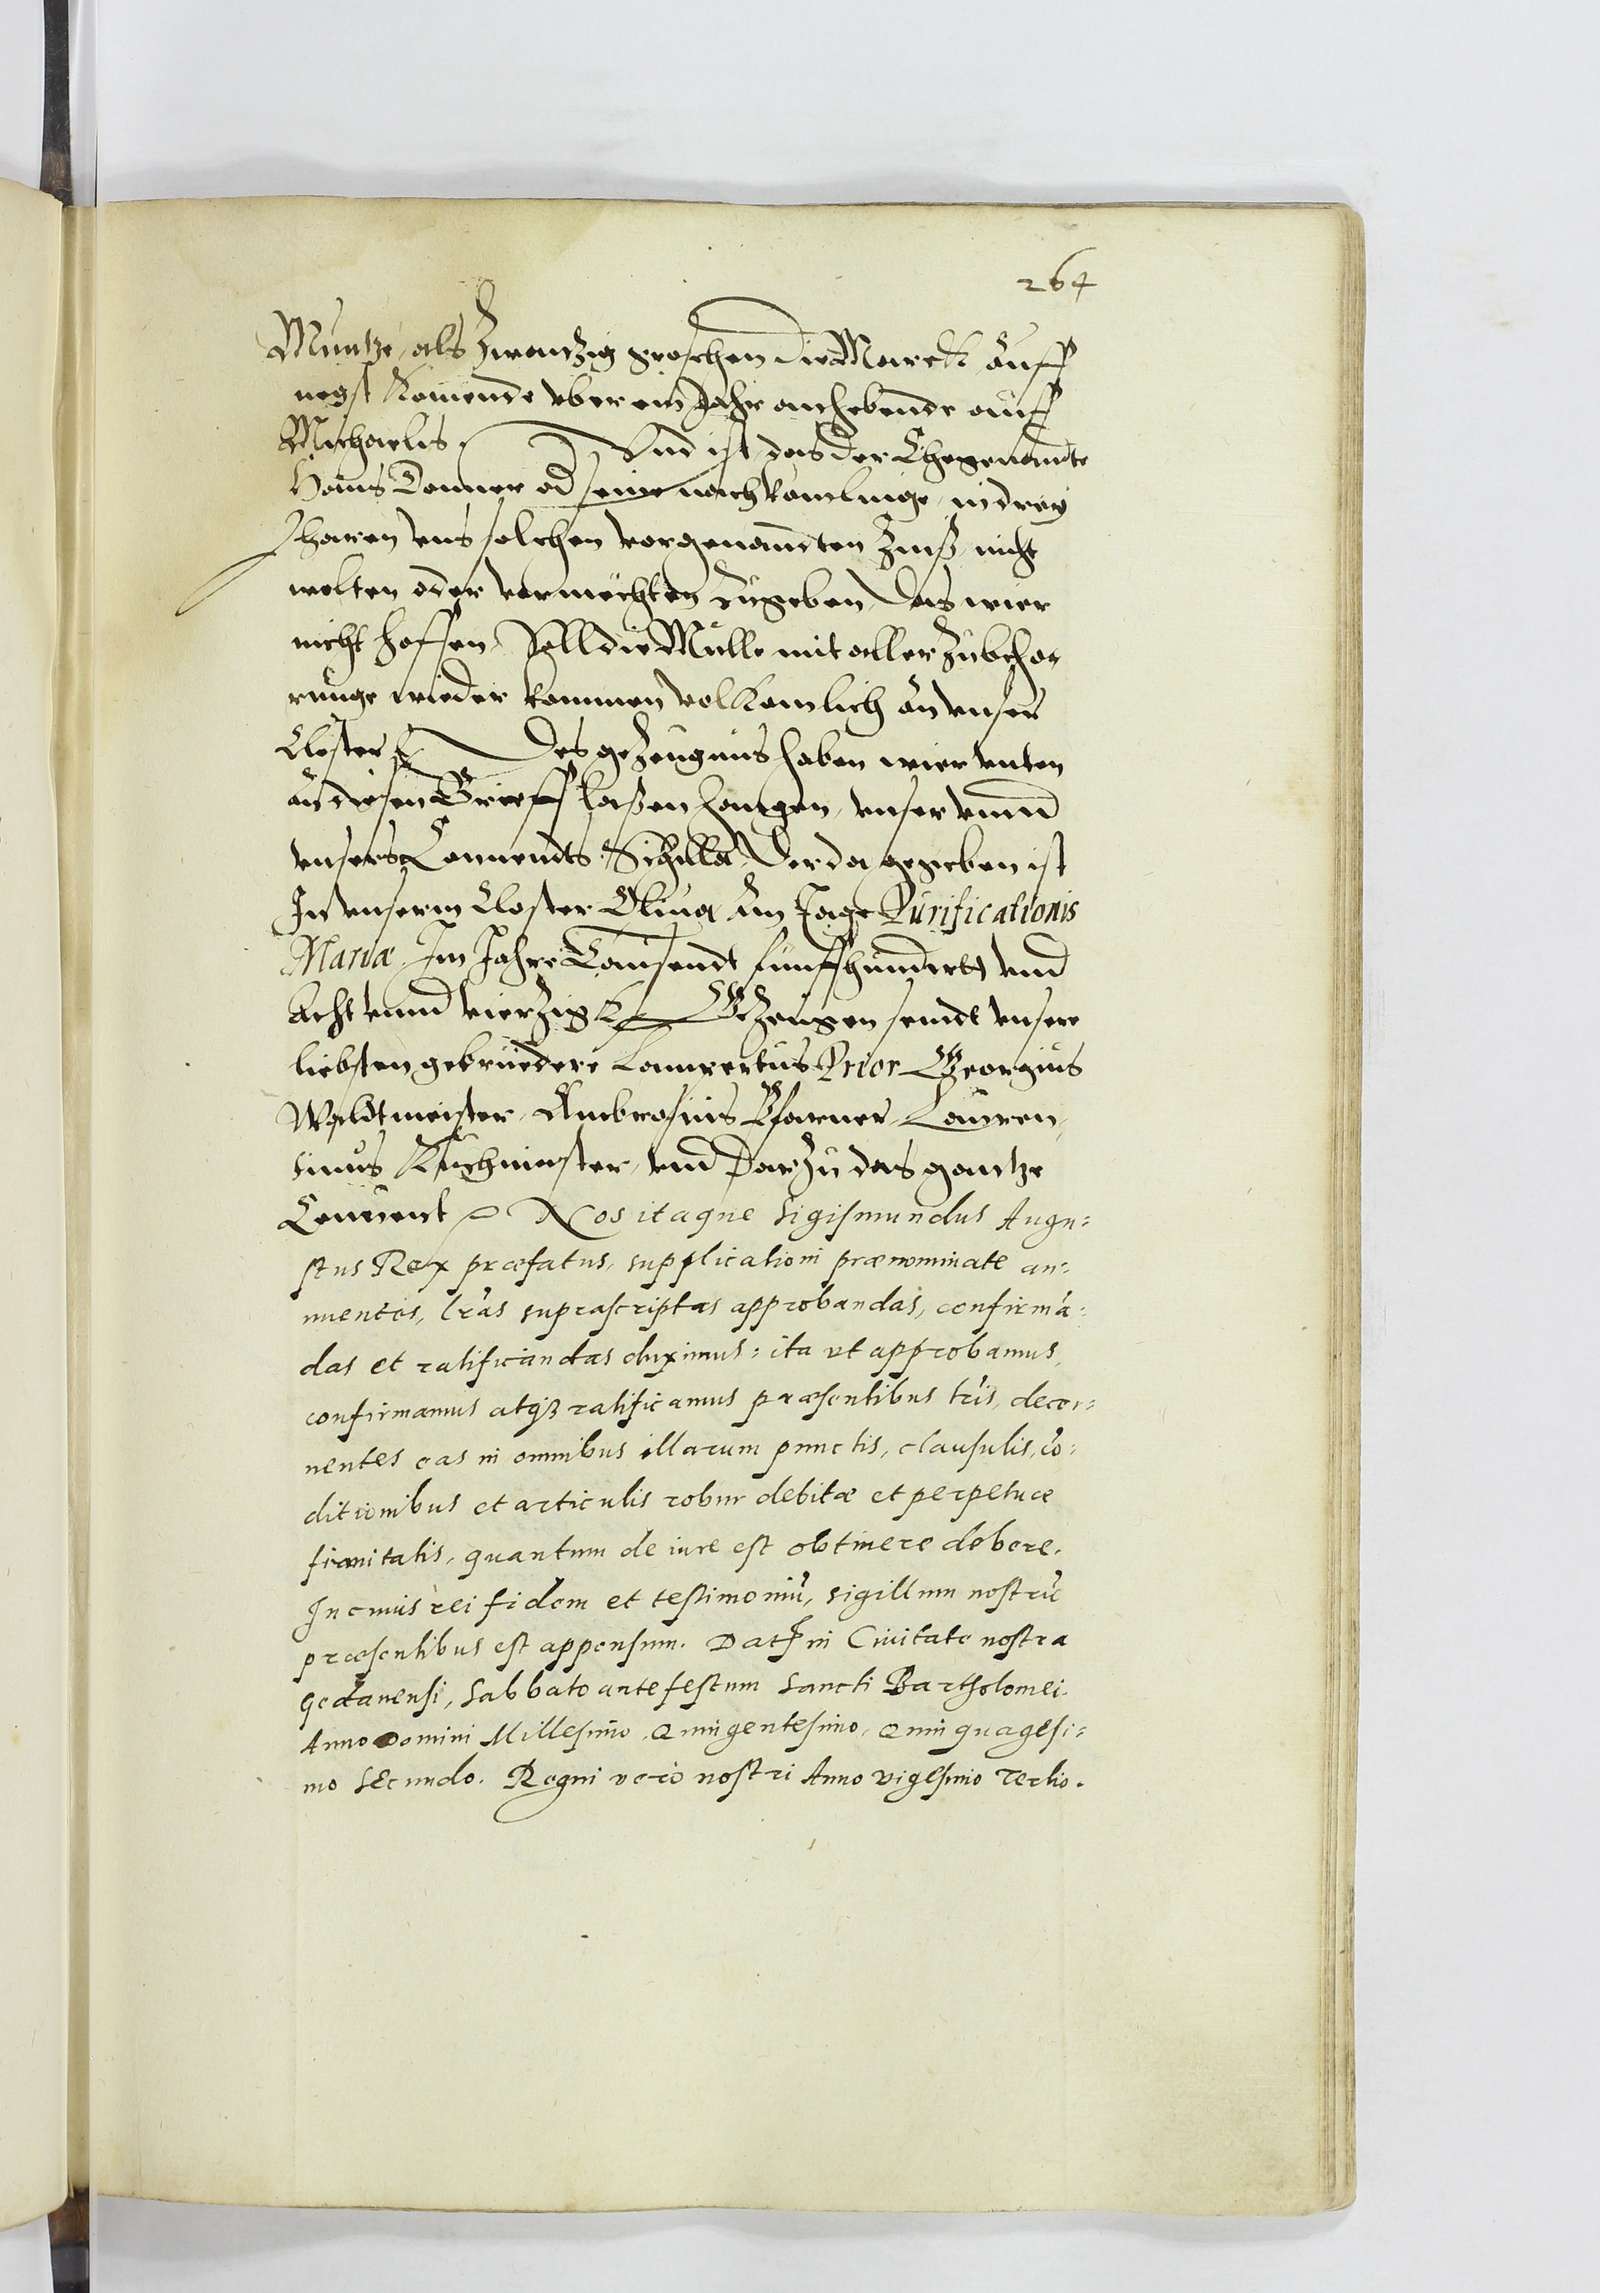 264
Muntze, als Zwantzig groschen die Marck auff
negst komende vber ein Jahr anhebende auff
Michaelis Vnd ist, das der Ehegenandte
Hans Donner od seine nachkomelinge, in drey
Jharen vns solchen vorgenandten Zinß nicht
wolten oder vermöchten zugeben, Das wier
nicht hoffen, Soll die Mülle mit aller Zubeho-
runge wieder kommen volkomlich an vnser
Closter Des geZeugnus haben wier vnten
an diesen Brieff laßen hangen, vnser vnnd
vnsers Conuents Sigill Der da gegeben ist
In vnserm Closter Oliua Am Tage Purificationis
Mariæ Im Jahre Tausendt funffhundertt vnd
Acht vnnd vierzig GeZeugen seindt vnsere
liebsten gebruedere Lampertus Prior Georgius
Waldtmeister, Ambrosius Pfarner, Lauren-
tius Kuchmeister, vnd DarZu das gantze
Conuent Nos itaque Sigismundus Augu=
stus Rex præfatus, supplicationi prænominate an=
nuentes, lrãs suprascriptas approbandas, confirmã=
das et ratificandas duximus: ita vt approbamus,
confirmamus atq3 ratificamus præsentibus lrĩs, decer=
nentes eas in omnibus illarum punctis, clausulis, cõ=
ditionibus et articulis robur debitæ et perpetuæ
firmitatis, quantum de iure est obtinere debere.
In cuius rei fidem et testimoniũ, sigillum nostrũ
præsentibus est appensum. Dat in Ciuitate nostra
Gedanensi, Sabbato ante festum Sancti Bartholomei.
Anno Domini Millesimo, Quingentesimo, Quinquagesi=
mo Secundo. Regni verò nostri Anno vigesimo Tertio.